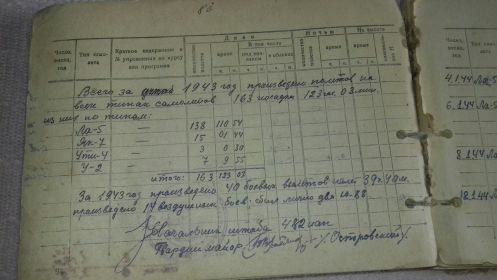 80
Днем
Ночью
На высоте
Числа, месяц, год
Тип само-лета
Краткое содержание и № упражнения по курсу или программе
время
В том числе
в облаках
время
время
Всего за 1943 год произведено полетов на
всех типах самолетов 163 посадки 123 час 03 мин.
из них по типам:
Ла-5 — 138 110 54
Як-7 — 15 01 44
Ути-4 — 3 0 30
У-2 — 7 9 55
итого: 163 123 03
За 1943 год произведено 40 боевых вылетов
произведено 14 воздушных боев. сбил лично два Ю-88.
Начальник штаба 482 иап
Гвардии майор /Островский/
4.1.44 Ла-5
6.1.44 Ла-5
8.1.44 Ла-5
18.1.44 Ла-5